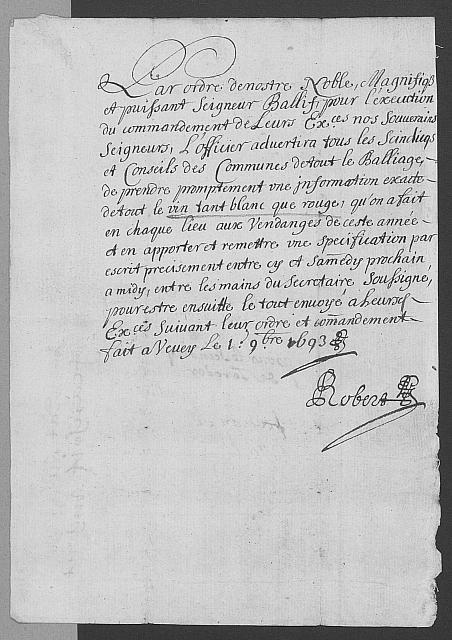 Par ordre de nostre Noble, Magnifiqs
et puissant Seigneur Ballif, pour l'execution
du commandement de Leurs Ex.ces nos Souverains
Seigneurs, L'officier advertira tous les Scindicqs
et Conseils des Communes de tout le Balliage,
de prendre promptement vne jnformation exacte
de tout le vin tant blanc que rouge, qu'on a fait
en chaque lieu aux Vendanges de ceste année
et en apporter et remettre vne specification par
escrit precisement entre cy et Samedy prochain
a midy, entre les mains du Secretaire Soussigné,
pour estre ensuitte le tout envoyé a leursd
Ex.ces Suivant leur ordre et comandement
fait a Vevey Le 1. 9bre 1693
Robert